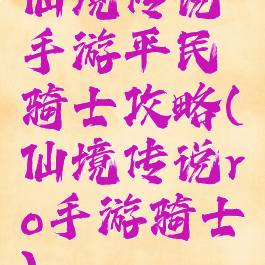 仙境传说
手游平民
骑士攻略(
仙境传说r
o手游骑士
)